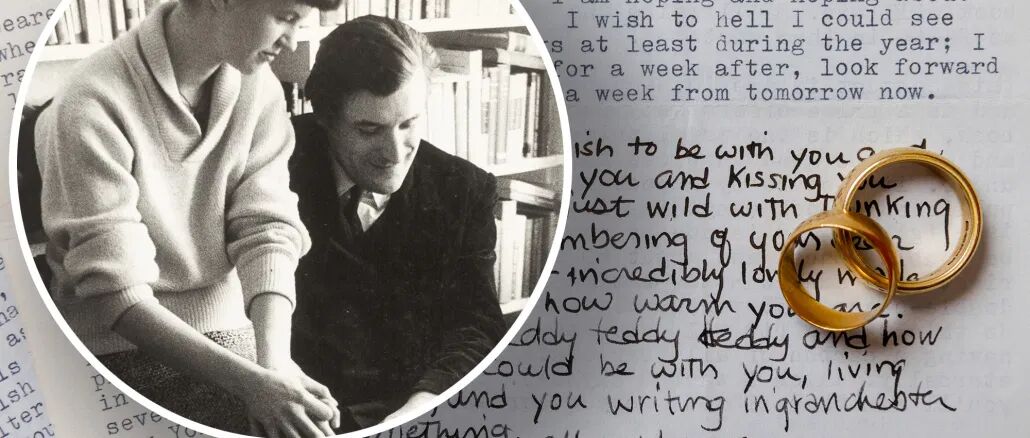 eare
whe
ra
I wish to hell I could see
s at least during the year; I
for a week after, look forward
a week from tomorrow now.
ish to be with you
you and kissing you
ust wild with thinking
mbering of your
incredibly lovely
how warm you are.
ddy teddy teddy and how
could be with you, living
and you writing in granchester
mething
as
is
ish
iter
in
seve